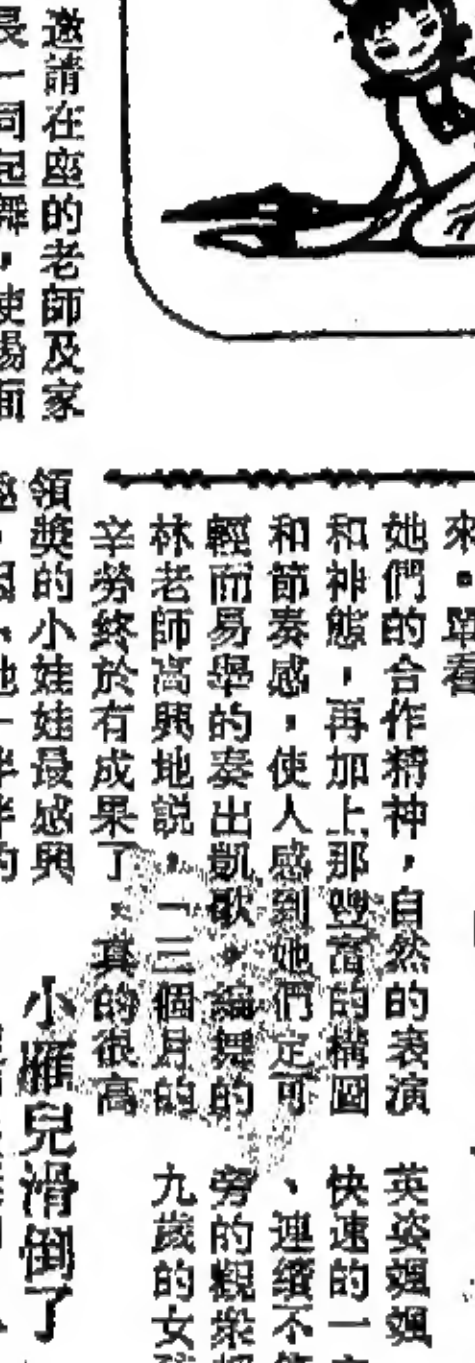 來。單看
她們的合作精神，自然的表演
和神態，再加上那豐富的構圖
和節奏感，使人感到她們定可
輕而易舉的奏出凱歌。編舞的
林老師高興地說，「三個月的
辛勞終於有成果了。真的很高
英姿颯颯
快速的一
、連續不
旁的觀眾
九歲的女
邀請在座的老師及家
長一同起舞，使場面
領獎的小娃娃最感興
小雁兒滑倒了